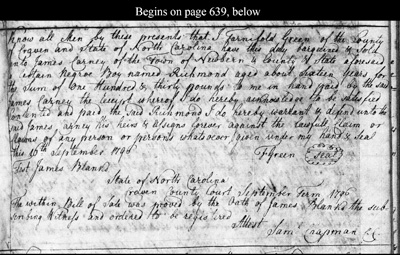 Begins on page 639, below
Know all Men by these presents that I Farnifold Green of the County
of Craven and State of North Carolina have this day bargained & Sold
unto James Carney of the Town of Newbern & County & State aforesaid
a certain Negroe Boy named Richmond aged about Sixteen Years for
the Sum of One Hundred & thirty pounds to me in hand paid by the said
James Carney the receipt whereof I do hereby acknowledge to be Satisfied
contented and paid the said Richmond I do hereby warrant & defend unto the
said James Carney His heirs & Assigns forever against the lawful claim or
Claims of any person or persons whatsoever given under my hand & Seal
this 10th September 1796
F Green Seal
Test James Blanks
State of North Carolina
Craven County Court September Term 1796
The within Bill of Sale was proved by the Oath of James Blanks the sub
scribing Witness and ordered to be registered
Attest
Saml Chapman